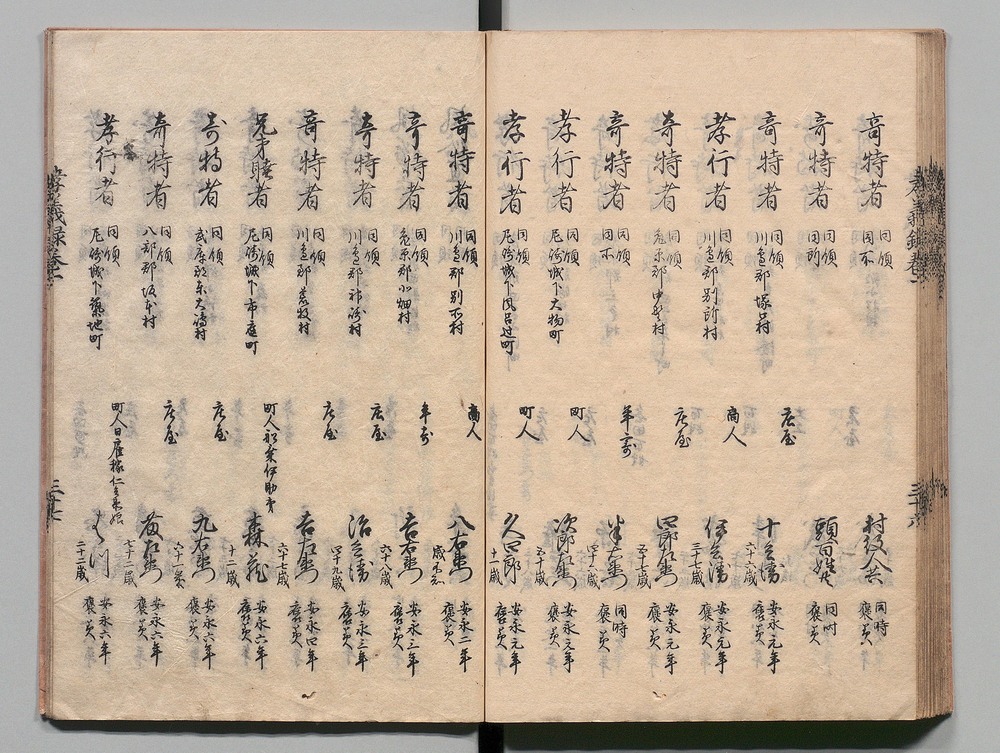 奇特者 同領 同不 村役人共 同時 褒美
奇特者 同領 同所 頭百姓共 同時 褒美
奇特者 同領 川邉郡塚口村 庄屋 十兵衛 六十六歳 安永元年 褒美
孝行者 同領 川邉郡別所村 商人 伊兵衛 三十七歳 安永元年 褒美
奇特者 同領 菟原郡中野村 庄屋 四郎左衛門 五十七歳 安永元年 褒美
奇特者 同領 同不 年寄 半右衛門 四十六歳 同時 褒美
孝行者 同領 尼崎城下大物町 町人 次郎左衛門 五十歳 安永元年 褒美
孝行者 同領 尼崎城下風呂辻町 町人 久四郎 十一歳 安永元年 褒美
奇特者 同領 川邉郡別所村 商人 八右衛門 歳不知 安永二年 褒美
奇特者 同領 菟原郡小畑村 年寄 吉右衛門 六十八歳 安永三年 褒美
奇特者 同領 川邉郡 村 庄屋 治兵衛 四十九歳 安永三年 褒美
奇特者 同領 川邉郡荒牧村 庄屋 吉左衛門 六十七歳 安永四年 褒美
兄弟睦者 同領 尼崎城下市庭町 町人 伊助 森蔵 十二歳 安永六年 褒美
奇特者 同領 武庫郡東大嶋村 庄屋 九右衛門 六十一歳 安永六年 褒美
奇特者 同領 八部郡坂本村 庄屋 左衛門 七十二歳 安永六年 褒美
孝行者 同領 尼崎城下築地町 町人日雇稼仁兵衛娘 川 二十二歳 安永六年 褒美